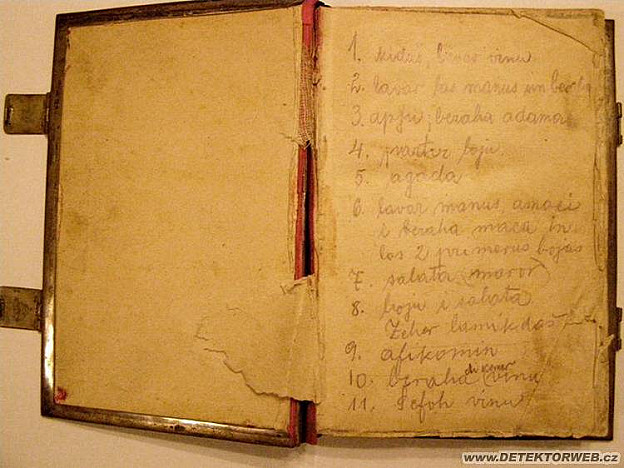 1. kiduš, bivar vinu
2. lavar las manus sin beraha
3. apju, beraha adama
4. partir boju
5. agada
6. lavar manus, amoci
i beraha maca in
los 2 primerus bojus
7. salata (maror)
8. boju i salata
Zeher lamikdaš
9. afikomin
10. beraha vinu
11. šefoh vinu
www.DETEKTORWEB.cz